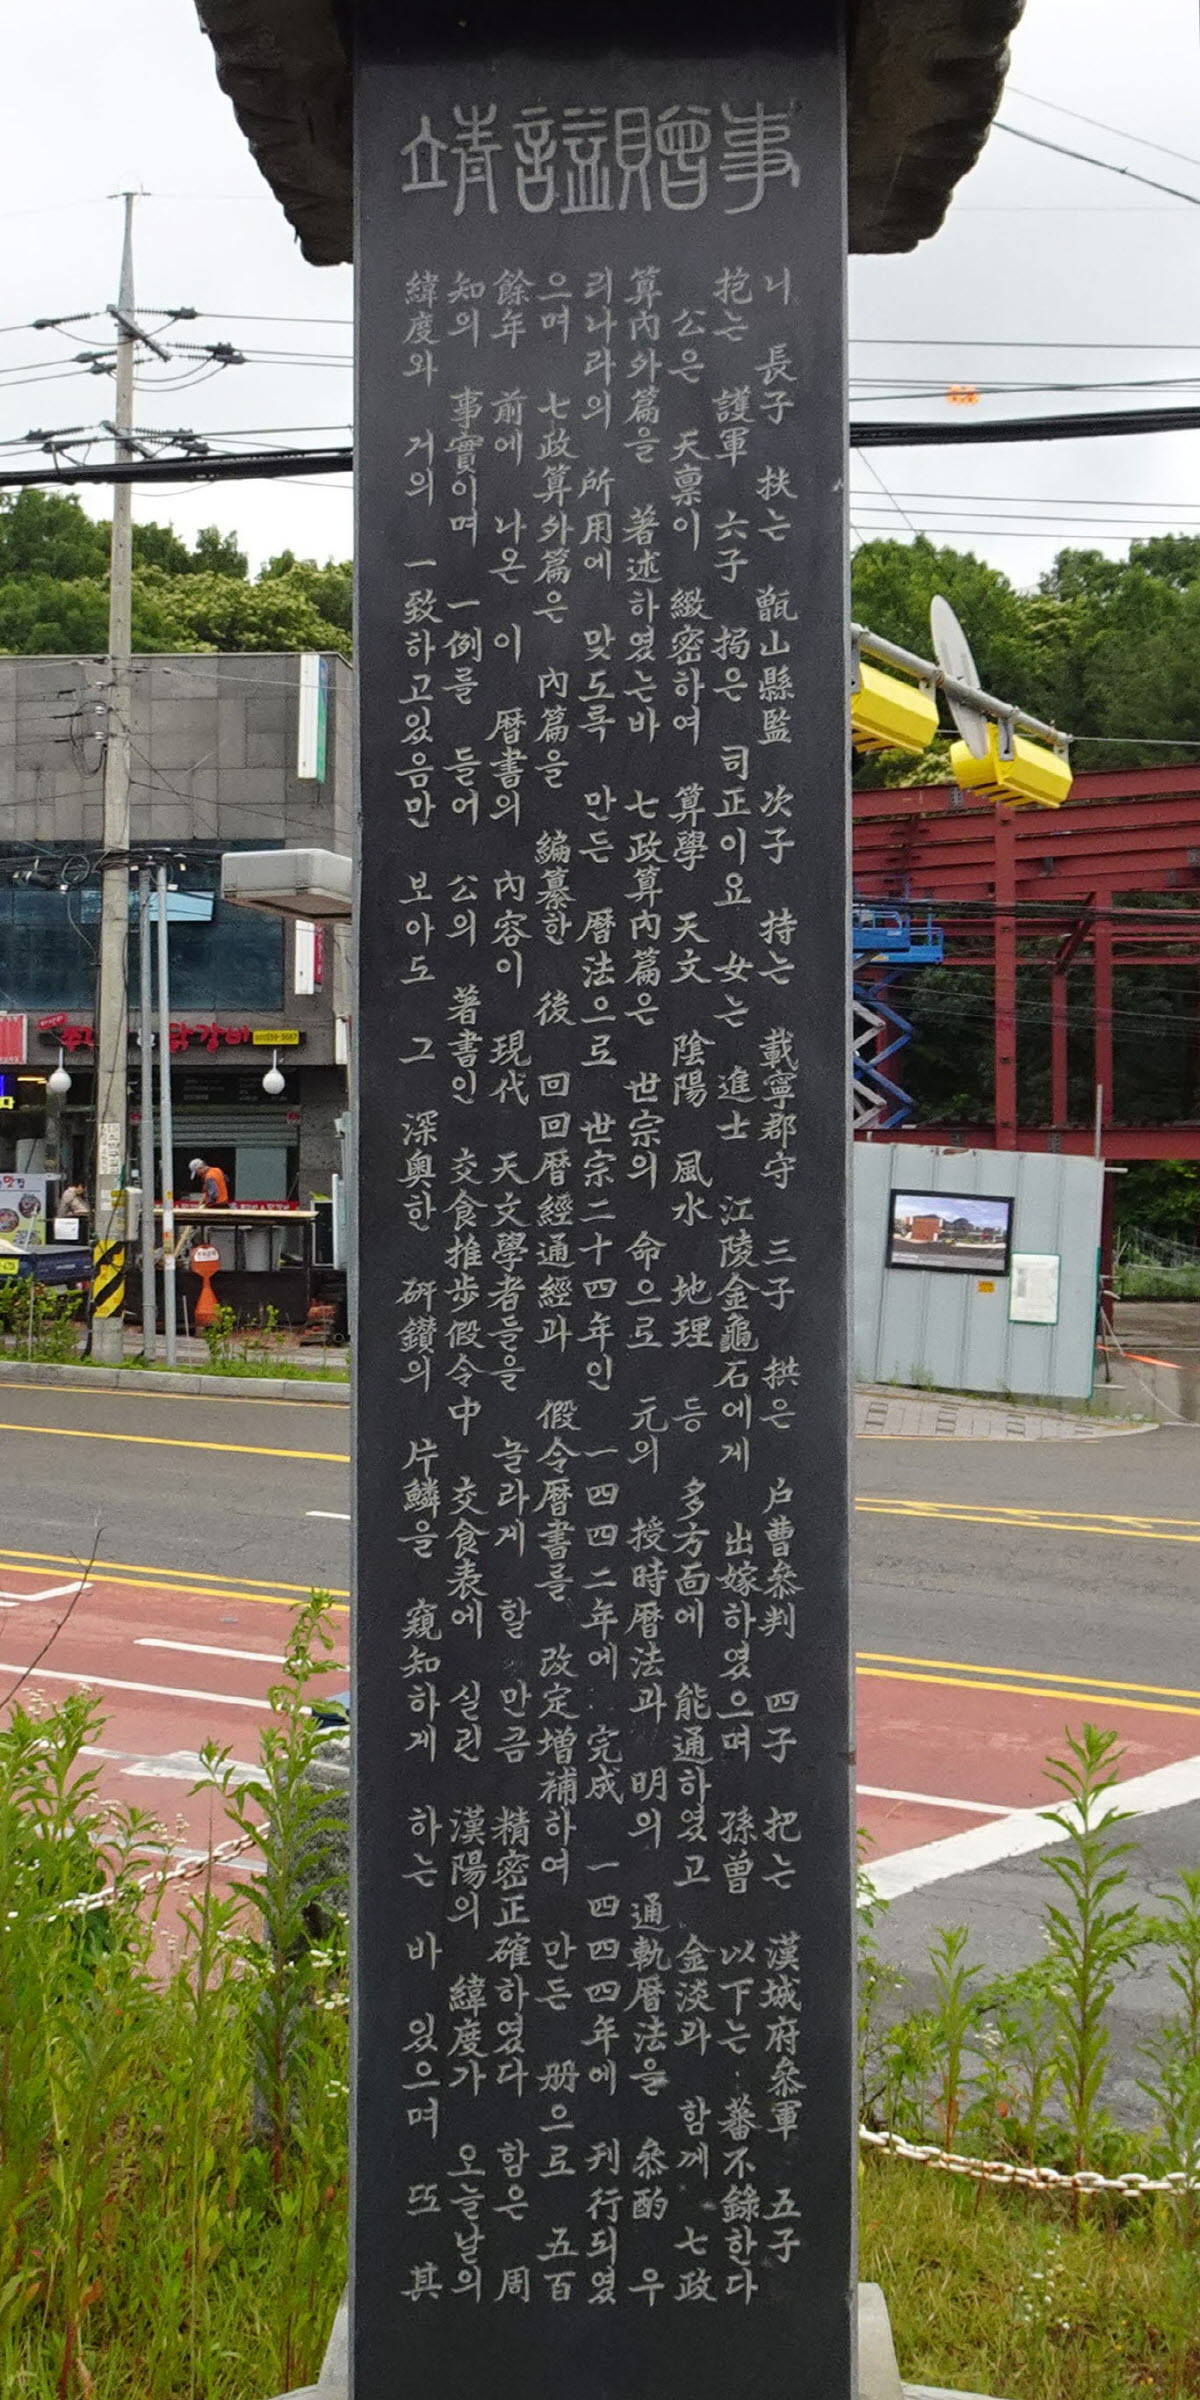 事贈諡靖
니 長子 扶는 甑山縣監 次子 持는 載寧郡守 三子 拱은 戶曹叅判 四子 把는 漢城府叅軍 五子
抱는 護軍 六子 揭은 司正이요 女는 進士 江陵金龜石에게 出嫁하였으며 孫曾 以下는 蕃不錄한다
公은 天禀이 緻密하여 算學 天文 陰陽 風水 地理 등 多方面에 能通하였고 金淡과 함께 七政
算內外篇을 著述하였는바 七政算內篇은 世宗의 命으로 元의 授時曆法과 明의 通軌曆法을 叅酌 우
리나라의 所用에 맞도록 만든 曆法으로 世宗二十四年인 一四四二年에 完成 一四四四年에 刊行되였
으며 七政算外篇은 內篇을 編纂한 後 回回曆經通經과 假令曆書를 改定增補하여 만든 册으로 五百
餘年 前에 나온 이 曆書의 內容이 現代 天文學者들을 놀라게 할 만금 精密正確하였다 함은 周
知의 事實이며 一例를 들어 公의 著書인 交食推步假令中 交食表에 실린 漢陽의 緯度가 오늘날의
緯度와 거의 一致하고있음만 보아도 그 深奧한 硏鑽의 片鱗을 窺知하게 하는 바 있으며 또 其
닭갈비